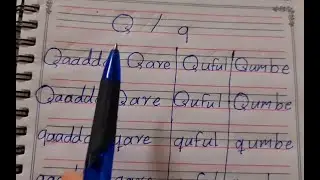 Q / q
Qaadda Qare Quful Qumbe
Qaadda Qare Quful Qumbe
qaadda qare quful qumbe